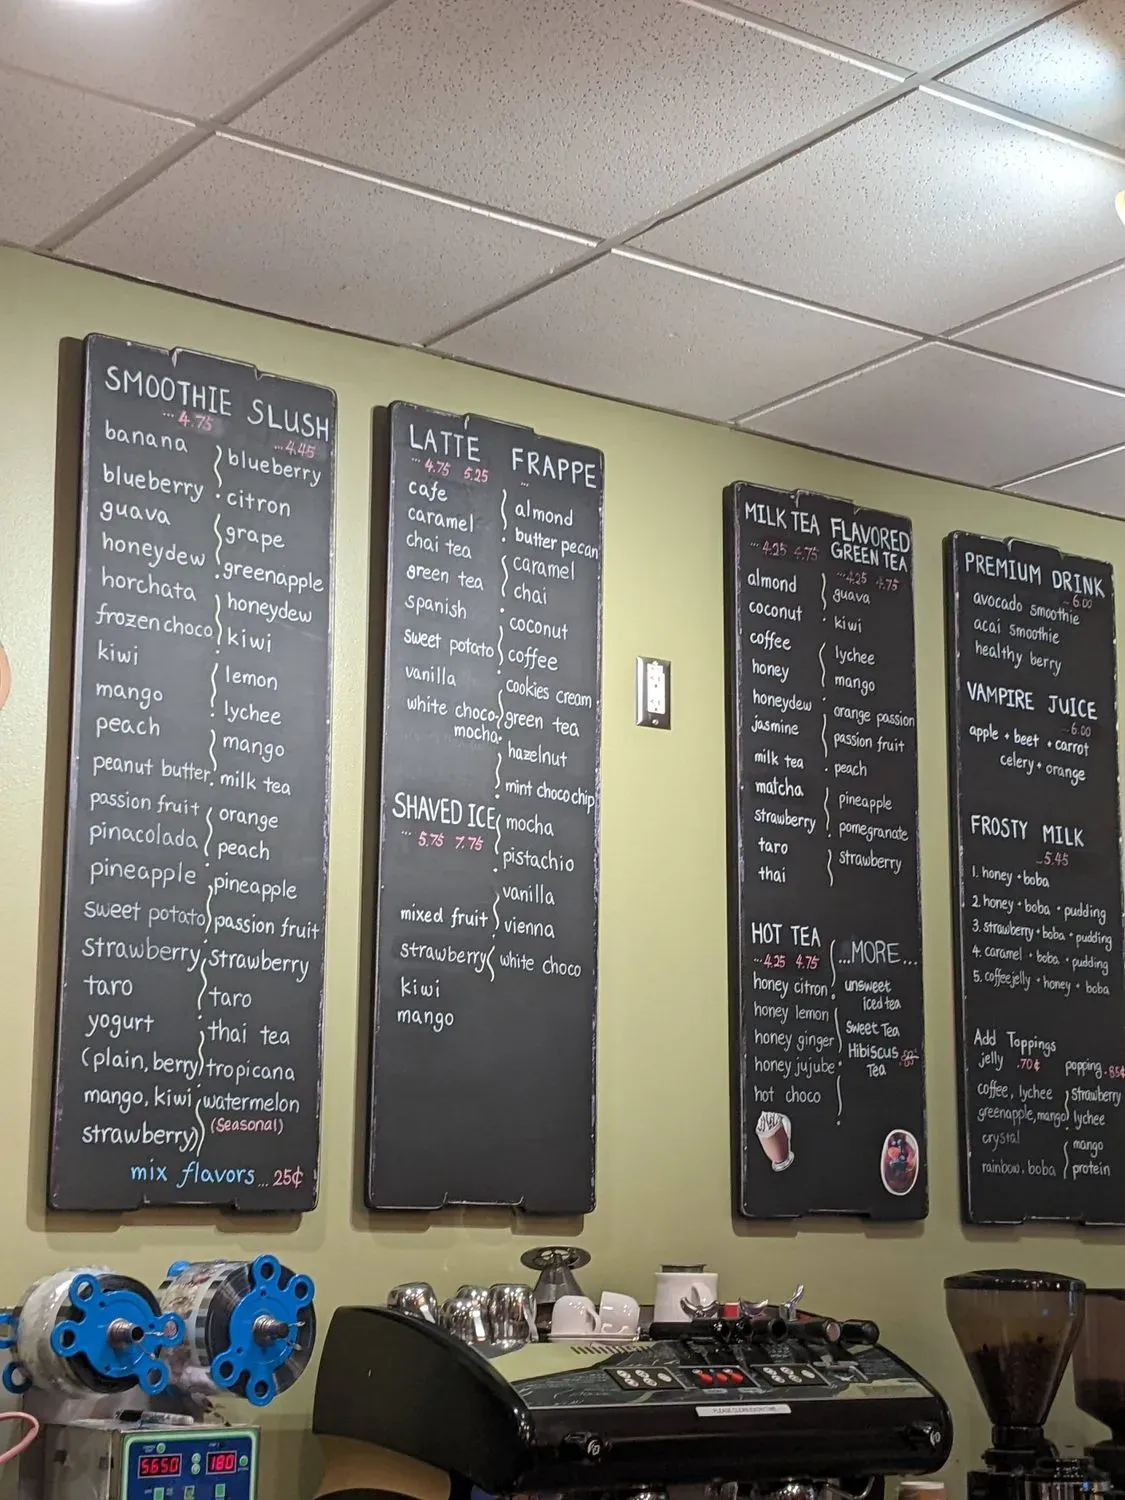 SMOOTHIE
... 4.75
banana
blueberry
guava
honeydew
horchata
frozen choco
kiwi
mango
peach
peanut butter
passion fruit
pinacolada
pineapple
sweet potato
strawberry
taro
yogurt
(plain, berry
mango, kiwi
strawberry)
SLUSH
... 4.45
blueberry
citron
grape
greenapple
honeydew
kiwi
lemon
lychee
mango
milk tea
orange
peach
pineapple
passion fruit
strawberry
taro
thai tea
tropicana
watermelon
(Seasonal)
mix flavors ... 25¢
LATTE
... 4.75 5.25
cafe
caramel
chai tea
green tea
spanish
sweet potato
vanilla
white choco
mocha
SHAVED ICE
... 5.75 7.75
mixed fruit
strawberry
kiwi
mango
FRAPPE
...
almond
butter pecan
caramel
chai
coconut
coffee
cookies cream
green tea
hazelnut
mint choco chip
mocha
pistachio
vanilla
vienna
white choco
MILK TEA
... 4.25 4.75
almond
coconut
coffee
honey
honeydew
jasmine
milk tea
matcha
strawberry
taro
thai
FLAVORED
GREEN TEA
... 4.25 4.75
guava
kiwi
lychee
mango
orange passion
passion fruit
peach
pineapple
pomegranate
strawberry
HOT TEA
... 4.25 4.75
honey citron
honey lemon
honey ginger
honey jujube
hot choco
...MORE...
unsweet
iced tea
Sweet Tea
Hibiscus
Tea
PREMIUM DRINK
... 6.00
avocado smoothie
acai smoothie
healthy berry
VAMPIRE JUICE
... 6.00
apple + beet + carrot
celery + orange
FROSTY MILK
... 5.45
1. honey + boba
2. honey + boba + pudding
3. strawberry + boba + pudding
4. caramel + boba + pudding
5. coffeejelly + honey + boba
Add Toppings
jelly .70¢
coffee, lychee
greenapple, mango
crystal
rainbow, boba
popping .85¢
strawberry
lychee
mango
protein
5650 180
PLEASE CLEAN EVERYTIME